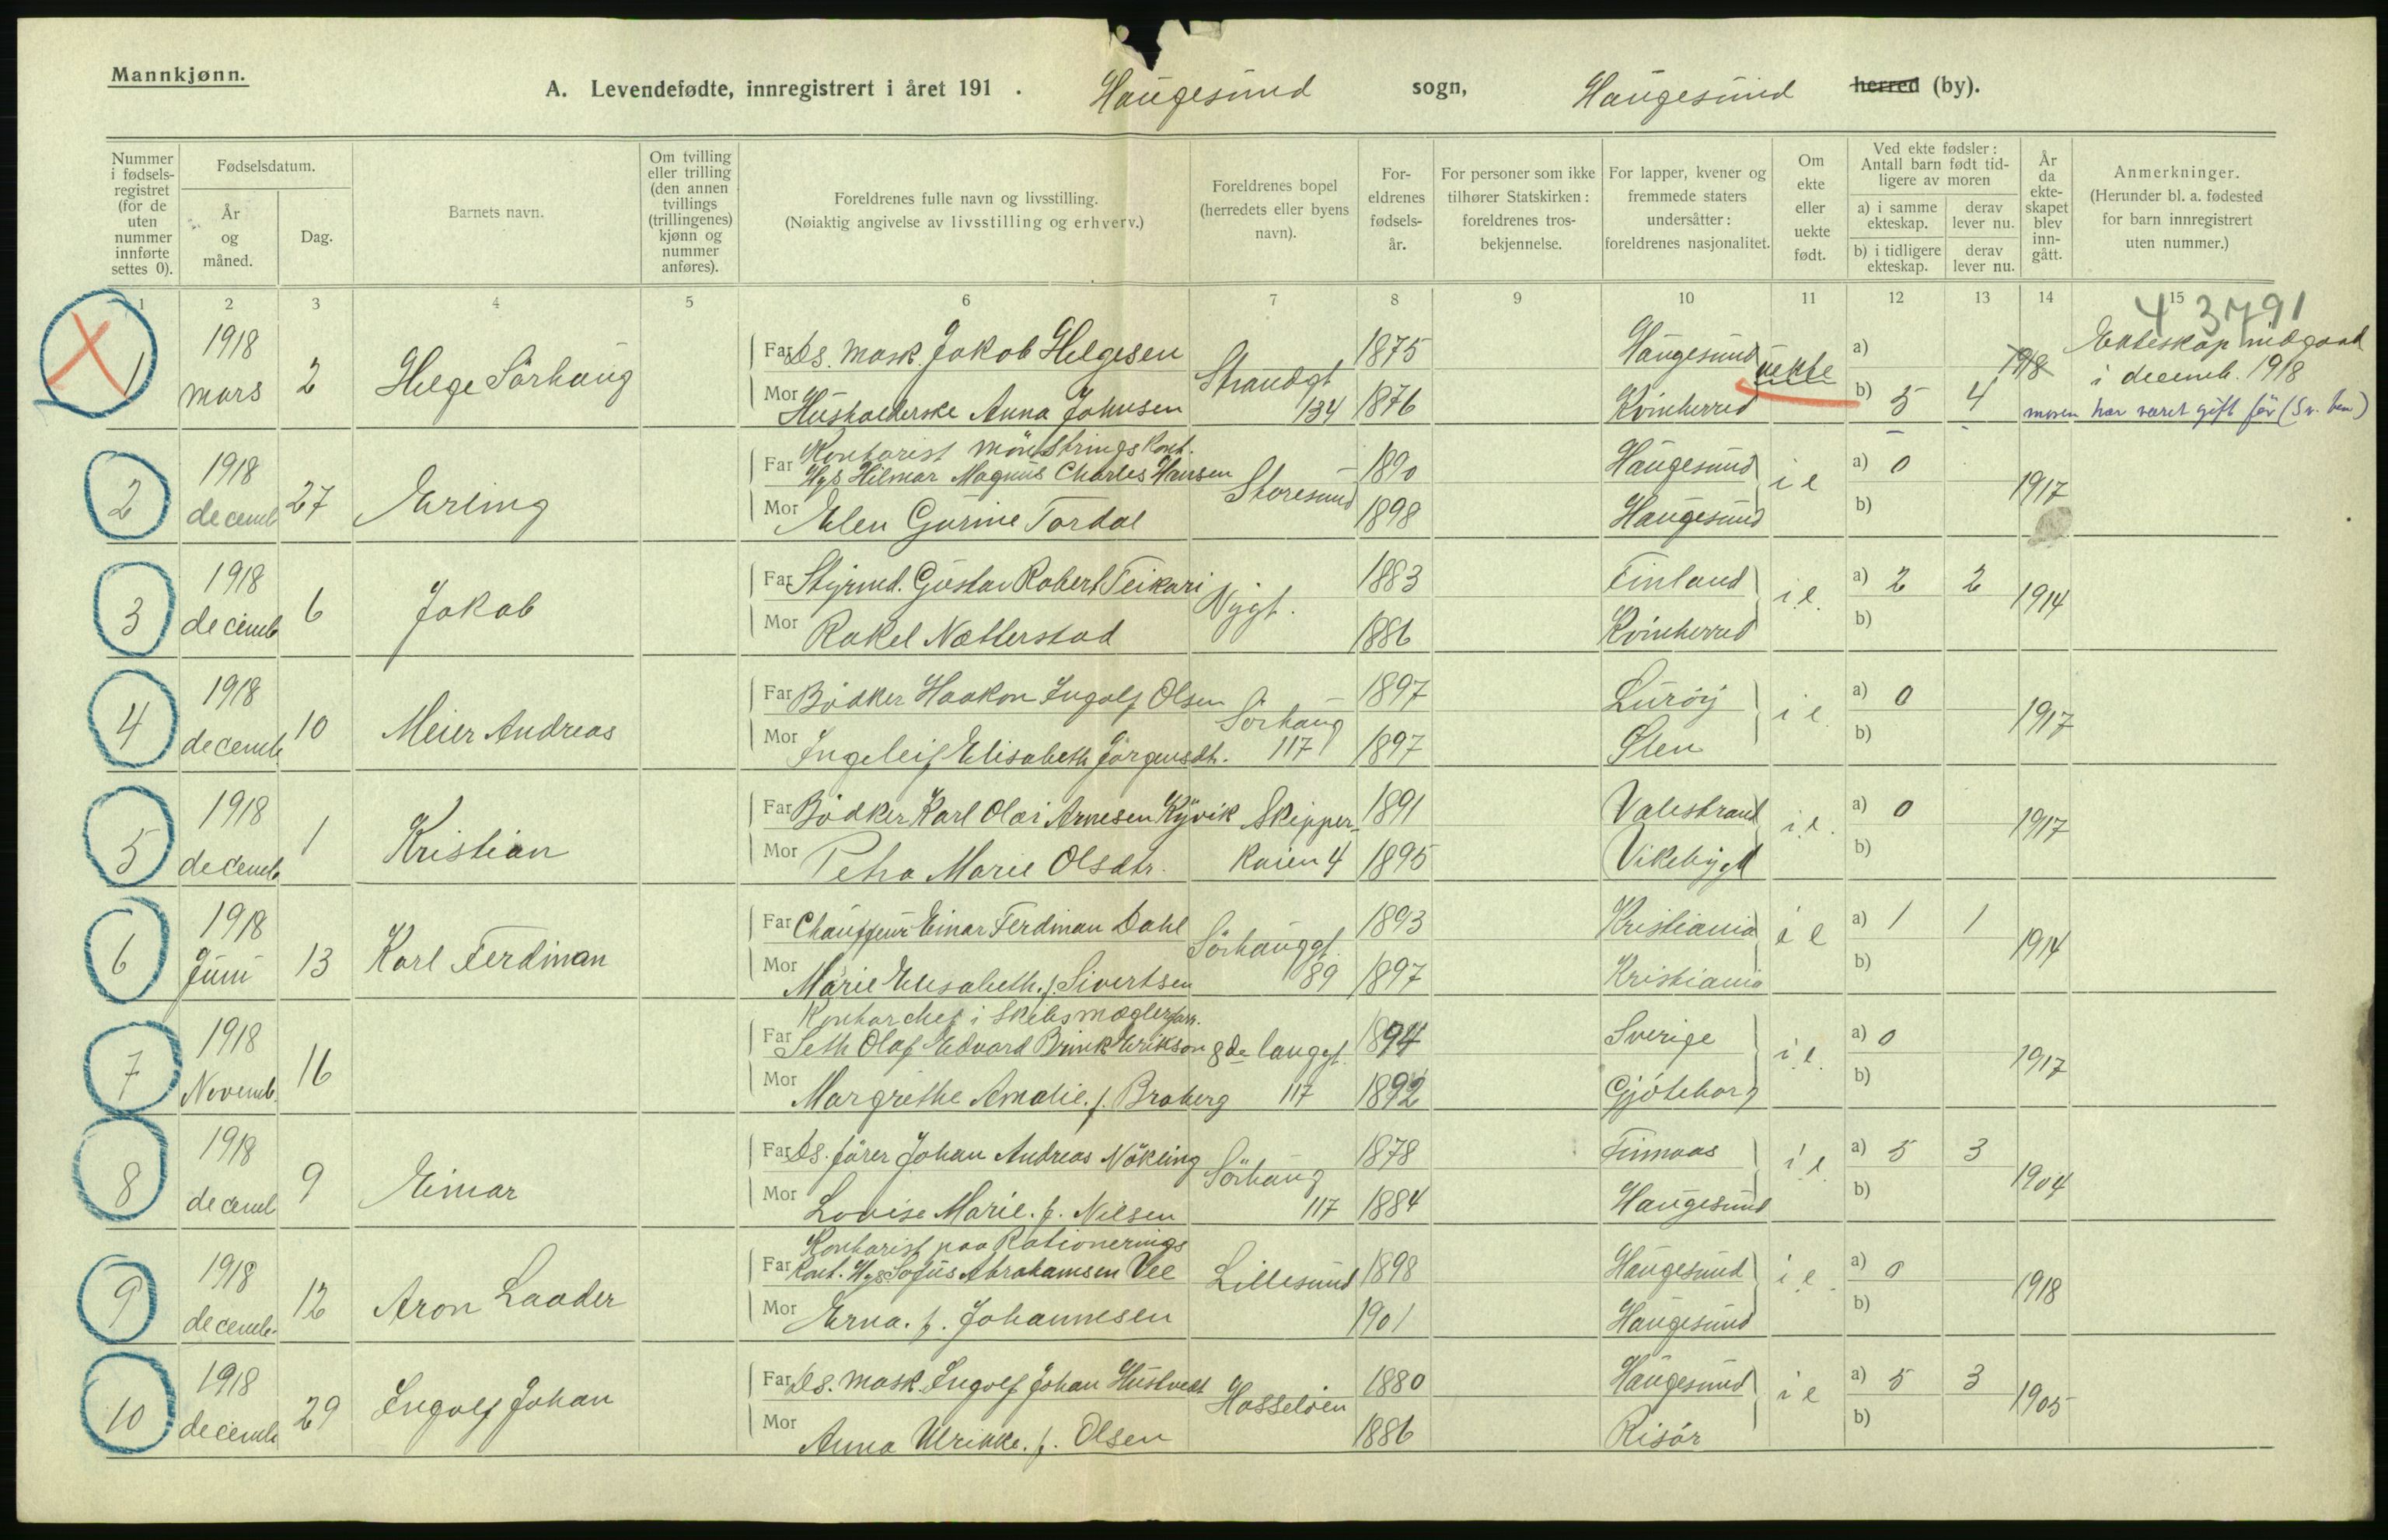 Mannkjønn.
A. Levendefødte, innregistrert i året 191 . Haugesund sogn, Haugesund herred (by).
Nummer i fødsels-registret (for de uten nummer innførte settes 0).
Fødselsdatum.
År og måned.
Dag.
Barnets navn.
Om tvilling eller trilling (den annen tvillings (trillingenes) kjønn og nummer anføres).
Foreldrenes fulle navn og livsstilling.
(Nøiaktig angivelse av livsstilling og erhverv.)
Foreldrenes bopel (herredets eller byens navn).
For-eldrenes fødsels-år.
For personer som ikke tilhører Statskirken: foreldrenes tros-bekjennelse.
For lapper, kvener og fremmede staters undersåtter: foreldrenes nasjonalitet.
Om ekte eller uekte født.
Ved ekte fødsler:
Antall barn født tid-ligere av moren
a) i samme ekteskap.
derav lever nu.
b) i tidligere ekteskap.
derav lever nu.
År da ekte-skapet blev inn-gått.
Anmerkninger.
(Herunder bl. a. fødested for barn innregistrert uten nummer.)
1 2 3 4 5 6 7 8 9 10 11 12 13 14 15
43791
1 1918 mars 2 Helge Sörhaug
Far Ds. mask. Jakob Helgesen Strandgt 134 1875 Haugesund uekte a) 1918 Ekteskap indgaad i decemb. 1918
Mor Husholderske Anna Johnsen 1876 Kvinherred b) 5 4 moren har været gift før
2 1918 decemb 27 Erling
Far Kontorist mönstringskont. Hys Hilmar Magnus Charles Hansen Storesund 1890 Haugesund i e a) 0 1917
Mor Elen Gurine Tordal 1898 Haugesund b)
3 1918 decemb 6 Jakob
Far Styrmd. Gustav Robert Teikari Nygt. 1883 Finland i.e. a) 2 2 1914
Mor Rakel Nætterstad 1886 Kvinherred b)
4 1918 decemb. 10 Meier Andreas
Far Bödker Haakon Ingolf Olsen Sörhaug 117 1897 Luröy i e. a) 0 1917
Mor Ingeleif Elisabeth Jörgensdt. 1897 Ølen b)
5 1918 decemb 1 Kristian
Far Bödker Karl Olai Arnesen Kyvik Skipper- 1891 Valestrand i.e. a) 0 1917
Mor Petra Marie Olsdtr. kaien 4 1895 Vikebygd b)
6 1918 Juni 13 Karl Ferdinan
Far Chauffeur Einar Ferdinan Dahl Sörhauggt. 89 1893 Kristiania i e a) 1 1 1914
Mor Marie Elisabeth. f. Sivertsen 1897 Kristiania b)
7 1918 Novemb. 16
Far Kontorchef i Skibsmæglerforr. Seth Olaf Edvard Brink Erikson 8de langgt. 1894 Sverige i.e. a) 0 1917
Mor Margrethe Amalie. f. Broberg 117 1892 Gjöteborg b)
8 1918 decemb 9 Einar
Far Ds. förer Johan Andreas Nökling Sörhaug 117 1878 Finnaas i e. a) 5 3 1904
Mor Lovise Marie. f. Nilsen 1884 Haugesund b)
9 1918 decemb. 12 Aron Laader
Far Kontorist paa Rationerings Kont. Hys. Sofus Abrahamsen Vee Lillesund 1898 Haugesund i e. a) 0 1918
Mor Erna. f. Johannesen 1901 Haugesund b)
10 1918 decemb 29 Ingolf Johan
Far Ds. mask. Ingolf Johan Hustvedt Hasseløen 1880 Haugesund i e a) 5 3 1905
Mor Anna Ulrikke. f. Olsen 1886 Risör b)